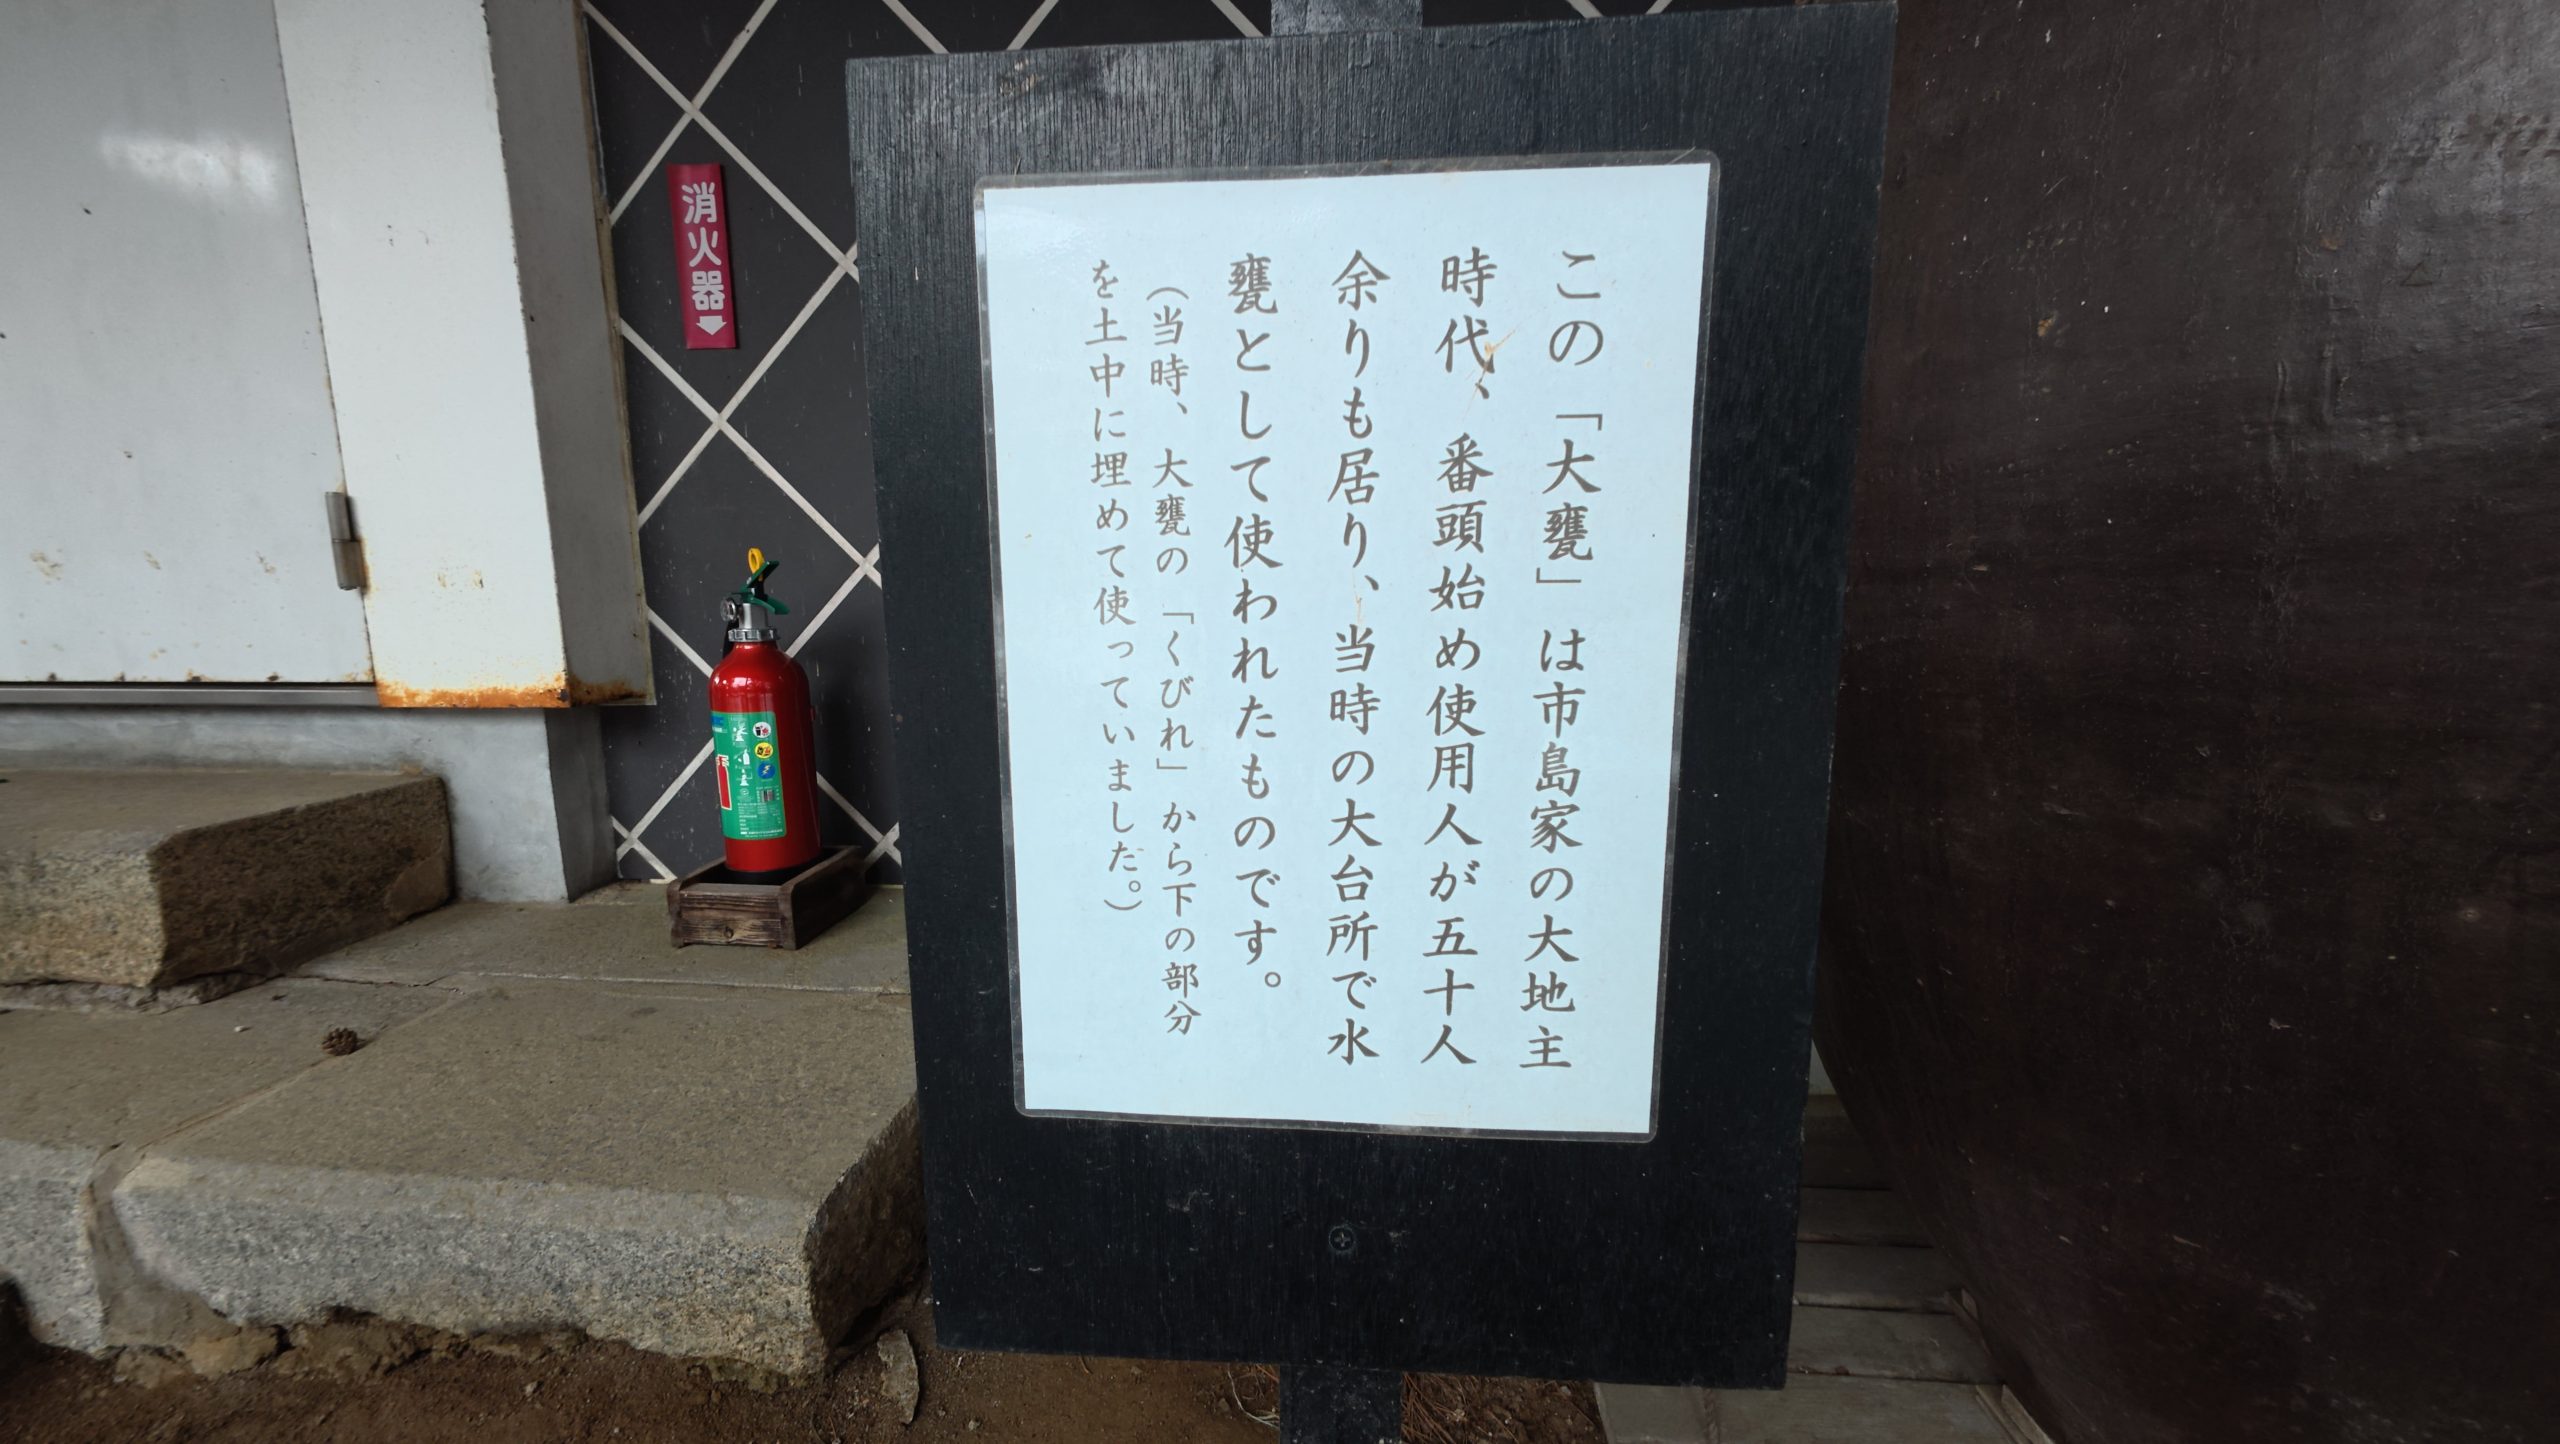 この「大甕」は市島家の大地主
時代、番頭始め使用人が五十人
余りも居り、当時の大台所で水
甕として使われたものです。
（当時、大甕の「くびれ」から下の部分
を土中に埋めて使っていました。）
消火器